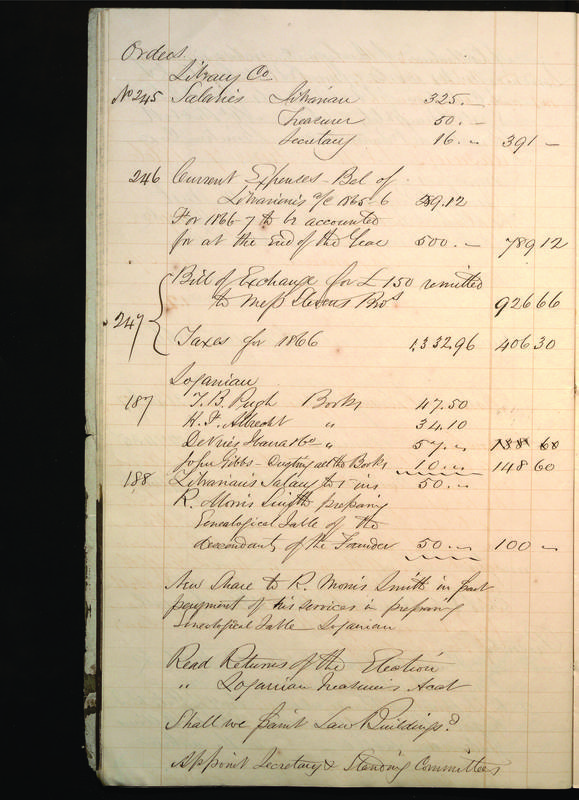 Orders.
Library Co.
No 245 Salaries Librarian 325.—
Treasurer 50.—
Secretary 16.— 391 —
246 Current Expenses Bal of
Librarian's a/c 1865-6 289.12
For 1866-7 to be accounted
for at the End of the Year 500.— 789 12
Bill of Exchange for £150 remitted
to Messrs Stevens Bros 926 66
247
Taxes for 1866 1,332.96 406 30
Loganian
187 T. B. Pugh Books 47.50
K. F. Albrecht " 34.10
DeVries Ibarra & Co " 57.— 138 60
John Gibbs — Dusting all the Books 10.— 148 60
188 Librarian's Salary to 50.—
R. Morris Smith preparing
Genealogical Table of the
descendants of the Founder 50.— 100 —
New Share to R. Morris Smith in part
payment of his services in preparing
Geneological Table Loganian
Read Returns of the Election
" Loganian Treasurer's Acct
Shall we paint Law Buildings?
Appoint Secretary & Standing Committees